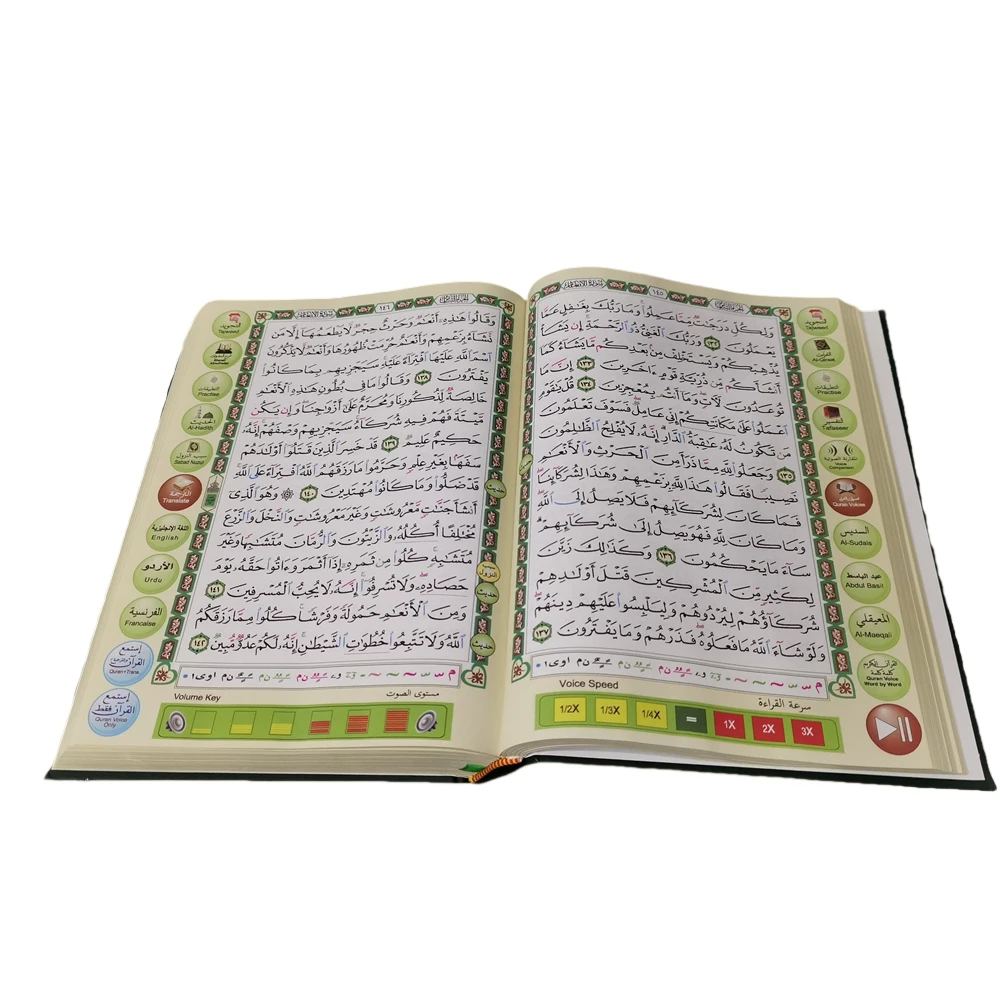 سورة الأنعام
١٤٥
الجزء الثامن
وَلِكُلٍّ دَرَجَٰتٌ مِّمَّا عَمِلُوا۟ وَمَا رَبُّكَ بِغَٰفِلٍ عَمَّا
يَعْمَلُونَ ١٣٢ وَرَبُّكَ ٱلْغَنِىُّ ذُو ٱلرَّحْمَةِ إِن يَشَأْ
يُذْهِبْكُمْ وَيَسْتَخْلِفْ مِنۢ بَعْدِكُم مَّا يَشَآءُ كَمَآ
أَنشَأَكُم مِّن ذُرِّيَّةِ قَوْمٍ ءَاخَرِينَ ١٣٣ إِنَّ مَا
تُوعَدُونَ لَءَاتٍ وَمَآ أَنتُم بِمُعْجِزِينَ ١٣٤ قُلْ يَٰقَوْمِ
ٱعْمَلُوا۟ عَلَىٰ مَكَانَتِكُمْ إِنِّى عَامِلٌ فَسَوْفَ تَعْلَمُونَ
مَن تَكُونُ لَهُۥ عَٰقِبَةُ ٱلدَّارِ إِنَّهُۥ لَا يُفْلِحُ ٱلظَّٰلِمُونَ
١٣٥ وَجَعَلُوا۟ لِلَّهِ مِمَّا ذَرَأَ مِنَ ٱلْحَرْثِ وَٱلْأَنْعَٰمِ
نَصِيبًا فَقَالُوا۟ هَٰذَا لِلَّهِ بِزَعْمِهِمْ وَهَٰذَا لِشُرَكَآئِنَا
فَمَا كَانَ لِشُرَكَآئِهِمْ فَلَا يَصِلُ إِلَى ٱللَّهِ
وَمَا كَانَ لِلَّهِ فَهُوَ يَصِلُ إِلَىٰ شُرَكَآئِهِمْ
سَآءَ مَا يَحْكُمُونَ ١٣٦ وَكَذَٰلِكَ زَيَّنَ
لِكَثِيرٍ مِّنَ ٱلْمُشْرِكِينَ قَتْلَ أَوْلَٰدِهِمْ
شُرَكَآؤُهُمْ لِيُرْدُوهُمْ وَلِيَلْبِسُوا۟ عَلَيْهِمْ دِينَهُمْ
وَلَوْ شَآءَ ٱللَّهُ مَا فَعَلُوهُ فَذَرْهُمْ وَمَا يَفْتَرُونَ ١٣٧
التجويد
Tajweed
القراءات
Al-Qiraat
التطبيقات
Practise
التفسير
Tafaseer
المقارنة الصوتية
Voice Comparison
Quran Voices
السديس
Al-Sudais
عبد الباسط
Abdul Basit
المعيقلي
Al-Maeqali
القرآن الكريم
كلمة كلمة
Quran Voice
Word by Word
Voice Speed
سرعة القراءة
1/2X
1/3X
1/4X
=
1X
2X
3X
الجزء الثامن
١٤٦
سورة الأنعام
وَقَالُوا۟ هَٰذِهِۦٓ أَنْعَٰمٌ وَحَرْثٌ حِجْرٌ لَّا يَطْعَمُهَآ إِلَّا مَن
نَّشَآءُ بِزَعْمِهِمْ وَأَنْعَٰمٌ حُرِّمَتْ ظُهُورُهَا وَأَنْعَٰمٌ لَّا يَذْكُرُونَ
ٱسْمَ ٱللَّهِ عَلَيْهَا ٱفْتِرَآءً عَلَيْهِ سَيَجْزِيهِم بِمَا كَانُوا۟
يَفْتَرُونَ ١٣٨ وَقَالُوا۟ مَا فِى بُطُونِ هَٰذِهِ ٱلْأَنْعَٰمِ
خَالِصَةٌ لِّذُكُورِنَا وَمُحَرَّمٌ عَلَىٰٓ أَزْوَٰجِنَا وَإِن يَكُن
مَّيْتَةً فَهُمْ فِيهِ شُرَكَآءُ سَيَجْزِيهِمْ وَصْفَهُمْ إِنَّهُۥ
حَكِيمٌ عَلِيمٌ ١٣٩ قَدْ خَسِرَ ٱلَّذِينَ قَتَلُوٓا۟ أَوْلَٰدَهُمْ
سَفَهًۢا بِغَيْرِ عِلْمٍ وَحَرَّمُوا۟ مَا رَزَقَهُمُ ٱللَّهُ ٱفْتِرَآءً عَلَى ٱللَّهِ
قَدْ ضَلُّوا۟ وَمَا كَانُوا۟ مُهْتَدِينَ ١٤٠ ۞ وَهُوَ ٱلَّذِىٓ
أَنشَأَ جَنَّٰتٍ مَّعْرُوشَٰتٍ وَغَيْرَ مَعْرُوشَٰتٍ وَٱلنَّخْلَ وَٱلزَّرْعَ
مُخْتَلِفًا أُكُلُهُۥ وَٱلزَّيْتُونَ وَٱلرُّمَّانَ مُتَشَٰبِهًا وَغَيْرَ
مُتَشَٰبِهٍ كُلُوا۟ مِن ثَمَرِهِۦٓ إِذَآ أَثْمَرَ وَءَاتُوا۟ حَقَّهُۥ يَوْمَ
حَصَادِهِۦ وَلَا تُسْرِفُوٓا۟ إِنَّهُۥ لَا يُحِبُّ ٱلْمُسْرِفِينَ ١٤١
وَمِنَ ٱلْأَنْعَٰمِ حَمُولَةً وَفَرْشًا كُلُوا۟ مِمَّا رَزَقَكُمُ
ٱللَّهُ وَلَا تَتَّبِعُوا۟ خُطُوَٰتِ ٱلشَّيْطَٰنِ إِنَّهُۥ لَكُمْ عَدُوٌّ مُّبِينٌ ١٤٢
حديث
نزول
حديث
حديث
التجويد
Tajweed
التطبيقات
Practise
الحديث
Al-Hadith
سبب النزول
Sabad Nuzul
الترجمة
Translate
اللغة الإنجليزية
English
الأردو
Urdu
الفرنسية
Francaise
إستمع
القرآن
Quran+Trans.
إستمع
القرآن فقط
Quran Voice
Only
Volume Key
مستوى الصوت